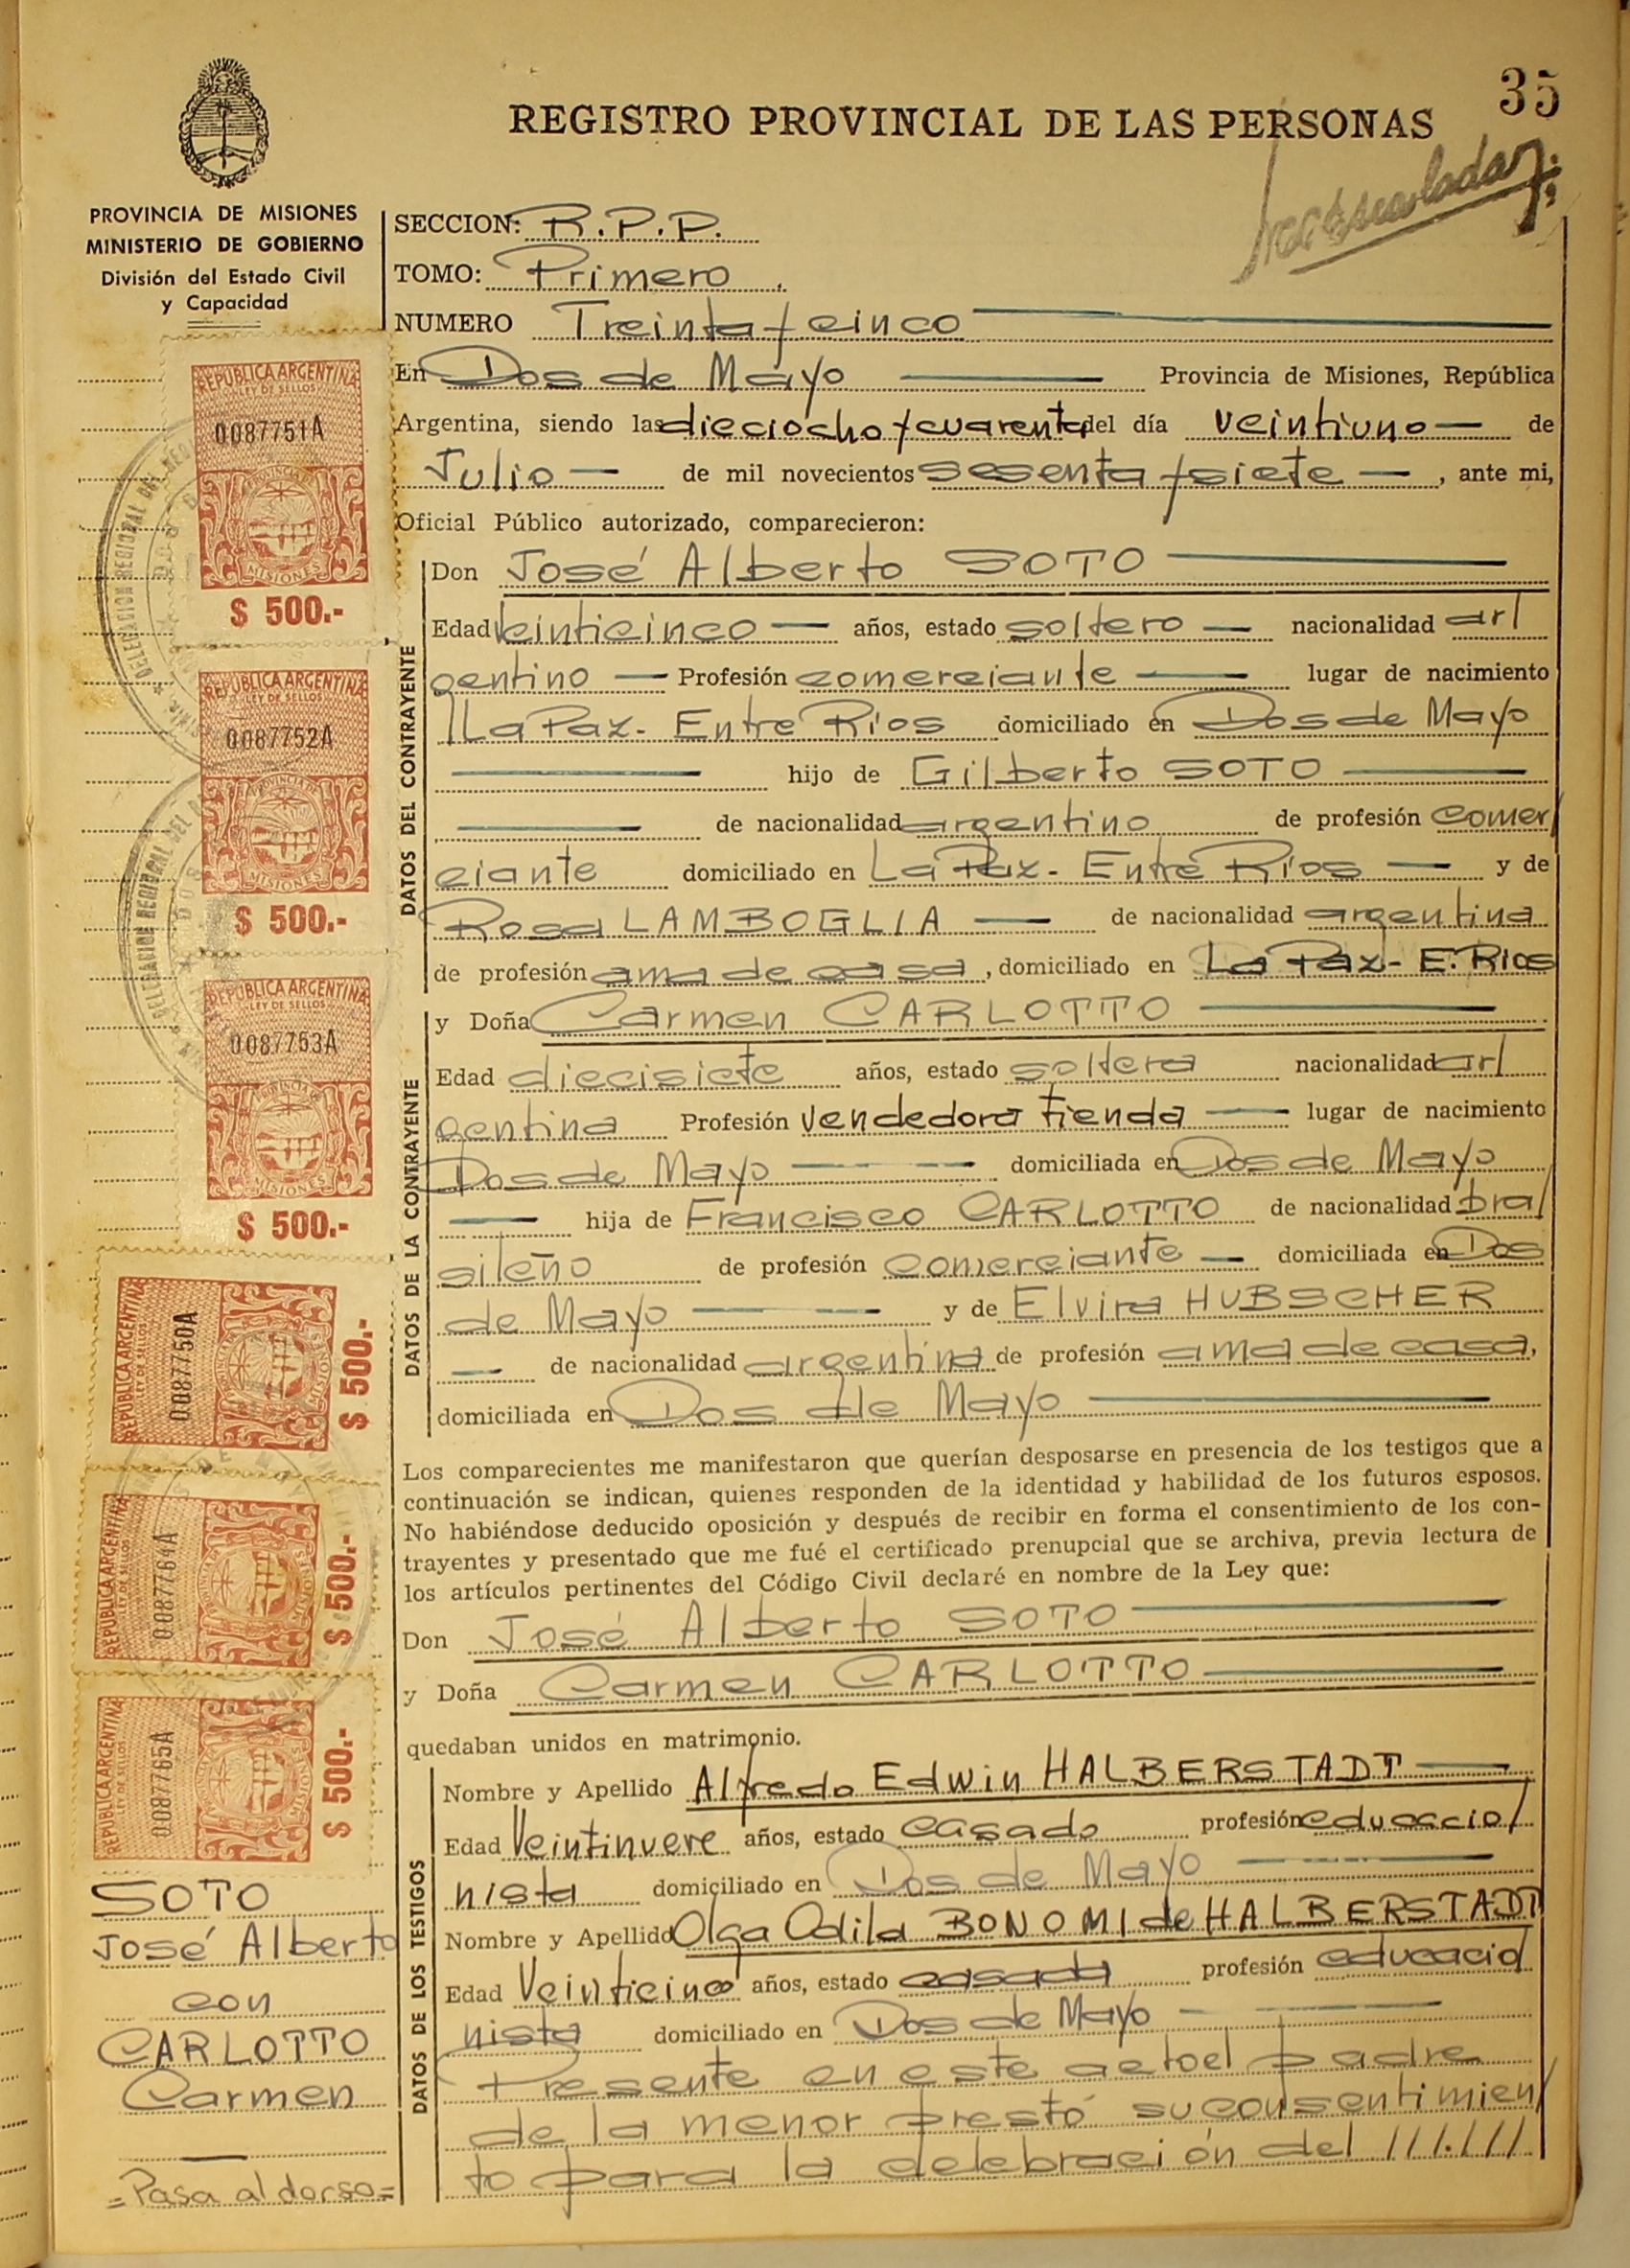 35
REGISTRO PROVINCIAL DE LAS PERSONAS
PROVINCIA DE MISIONES
MINISTERIO DE GOBIERNO
División del Estado Civil
y Capacidad
SECCION: R.P.P.
TOMO: Primero
NUMERO Treinta y cinco
En Dos de Mayo Provincia de Misiones, República
Argentina, siendo las dieciocho y cuarenta del día veintiuno de
Julio de mil novecientos sesenta y siete, ante mi,
Oficial Público autorizado, comparecieron:
DATOS DEL CONTRAYENTE
Don José Alberto SOTO
Edad veinticinco años, estado soltero nacionalidad ar/
gentino Profesión comerciante lugar de nacimiento
La Paz - Entre Ríos domiciliado en Dos de Mayo
hijo de Gilberto SOTO
de nacionalidad argentino de profesión comer/
ciante domiciliado en La Paz - Entre Ríos y de
Rosa LAMBOGLIA de nacionalidad argentina
de profesión ama de casa, domiciliado en La Paz - E. Rios
DATOS DE LA CONTRAYENTE
y Doña Carmen CARLOTTO
Edad diecisiete años, estado soltera nacionalidad ar/
gentina Profesión vendedora tienda lugar de nacimiento
Dos de Mayo domiciliada en Dos de Mayo
hija de Francisco CARLOTTO de nacionalidad bra/
sileño de profesión comerciante domiciliada en Dos
de Mayo y de Elvira HUBSCHER
de nacionalidad argentina de profesión ama de casa,
domiciliada en Dos de Mayo
Los comparecientes me manifestaron que querían desposarse en presencia de los testigos que a
continuación se indican, quienes responden de la identidad y habilidad de los futuros esposos.
No habiéndose deducido oposición y después de recibir en forma el consentimiento de los con-
trayentes y presentado que me fué el certificado prenupcial que se archiva, previa lectura de
los artículos pertinentes del Código Civil declaré en nombre de la Ley que:
Don José Alberto SOTO
y Doña Carmen CARLOTTO
quedaban unidos en matrimonio.
DATOS DE LOS TESTIGOS
Nombre y Apellido Alfredo Edwin HALBERSTADT
Edad Veintinueve años, estado casado profesión educacio/
nista domiciliado en Dos de Mayo
Nombre y Apellido Olga Odila BONOMI de HALBERSTADT
Edad Veinticinco años, estado casada profesión educacio/
nista domiciliado en Dos de Mayo
Presente en este acto el padre
de la menor prestó su consentimien/
to para la celebración del //////
REPUBLICA ARGENTINA
LEY DE SELLOS
0087751A
MISIONES
$ 500.-
REPUBLICA ARGENTINA
LEY DE SELLOS
0087752A
MISIONES
$ 500.-
REPUBLICA ARGENTINA
LEY DE SELLOS
0087753A
MISIONES
$ 500.-
REPUBLICA ARGENTINA
LEY DE SELLOS
0087750A
MISIONES
$ 500.-
REPUBLICA ARGENTINA
LEY DE SELLOS
0087764A
MISIONES
$ 500.-
REPUBLICA ARGENTINA
LEY DE SELLOS
0087765A
MISIONES
$ 500.-
SOTO
José Alberto
con
CARLOTTO
Carmen
=Pasa al dorso=